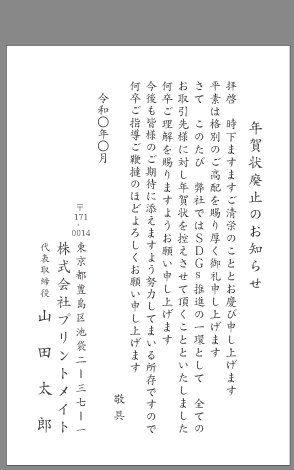 年賀状廃止のお知らせ
拝啓　時下ますますご清栄のこととお慶び申し上げます
平素は格別のご高配を賜り厚く御礼申し上げます
さて　このたび　弊社ではSDGs推進の一環として　全ての
お取引先様に対し年賀状を控えさせて頂くことといたしました
何卒ご理解を賜りますようお願い申し上げます
今後も皆様のご期待に添えますよう努力してまいる所存ですので
何卒ご指導ご鞭撻のほどよろしくお願い申し上げます
敬具
令和〇年〇月
〒171-0014
東京都豊島区池袋二ー三七ー一
株式会社プリントメイト
代表取締役　山田太郎